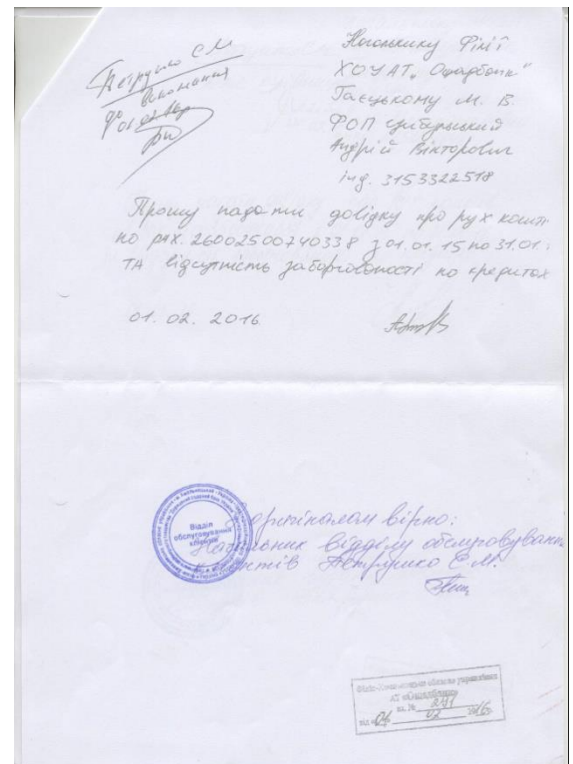 Петрушко С М
Начальнику Філії
ХОУ АТ „Ощадбанк"
М. В.
ФОП
Андрій Вікторович
інд. 3153322518
Прошу надати довідку про рух коштів
по рах. 26002500740338 з 01.01.15 по 31.01.
та відсутність заборгованості по кредитах
01. 02. 2016
Відділ
обслуговування
клієнтів
З оригіналом вірно:
Начальник відділу обслуговування
клієнтів Петрушко С.М.
обласне управління
АТ «Ощадбанк»
вх. №
від « 04 02 2016